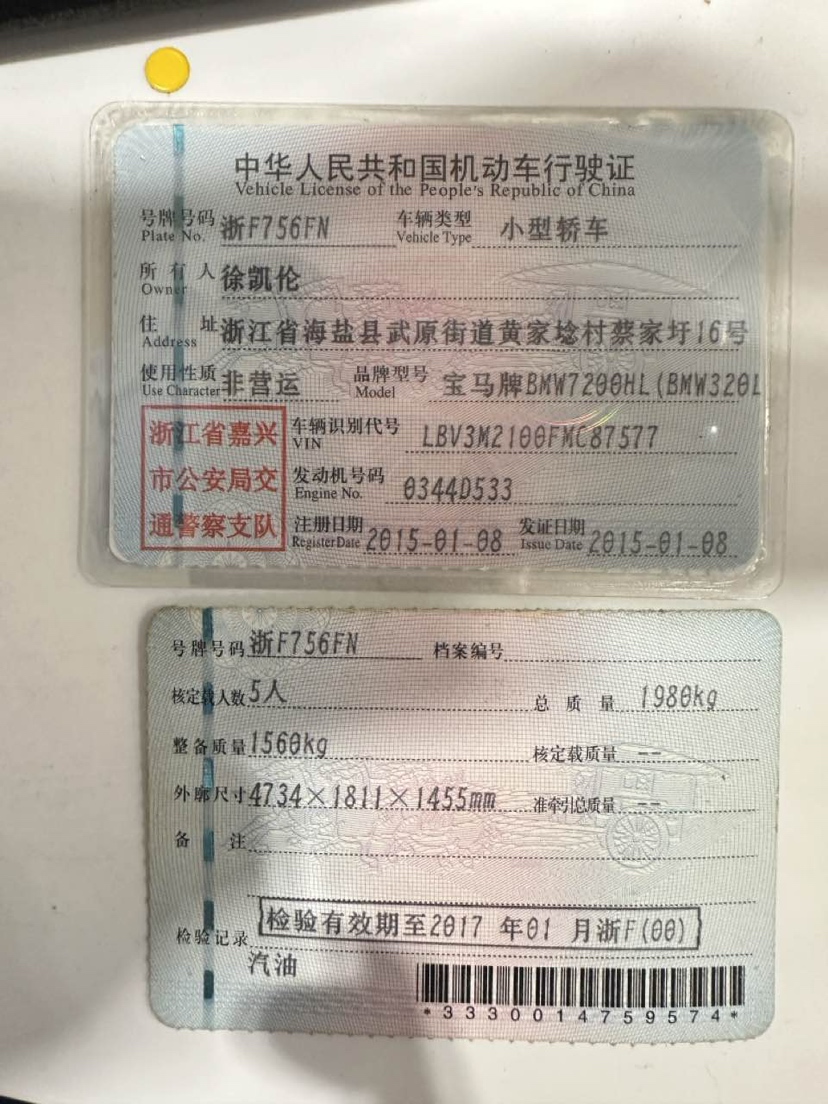 中华人民共和国机动车行驶证
Vehicle License of the People's Republic of China
号牌号码 浙F756FN 车辆类型 小型轿车
Plate No. Vehicle Type
所有人 徐凯伦
Owner
住址 浙江省海盐县武原街道黄家埝村蔡家圩16号
Address
使用性质 非营运 品牌型号 宝马牌BMW7200HL(BMW320L
Use Character Model
浙江省嘉兴
市公安局交
通警察支队
车辆识别代号 LBV3M2100FMC87577
VIN
发动机号码 0344D533
Engine No.
注册日期 2015-01-08 发证日期 2015-01-08
Register Date Issue Date
号牌号码 浙F756FN 档案编号
核定载人数 5人 总质量 1980kg
整备质量 1560kg 核定载质量 --
外廓尺寸 4734×1811×1455mm 准牵引总质量 --
备注
检验记录 检验有效期至2017年01月浙F(00)
汽油
*3330014759574*